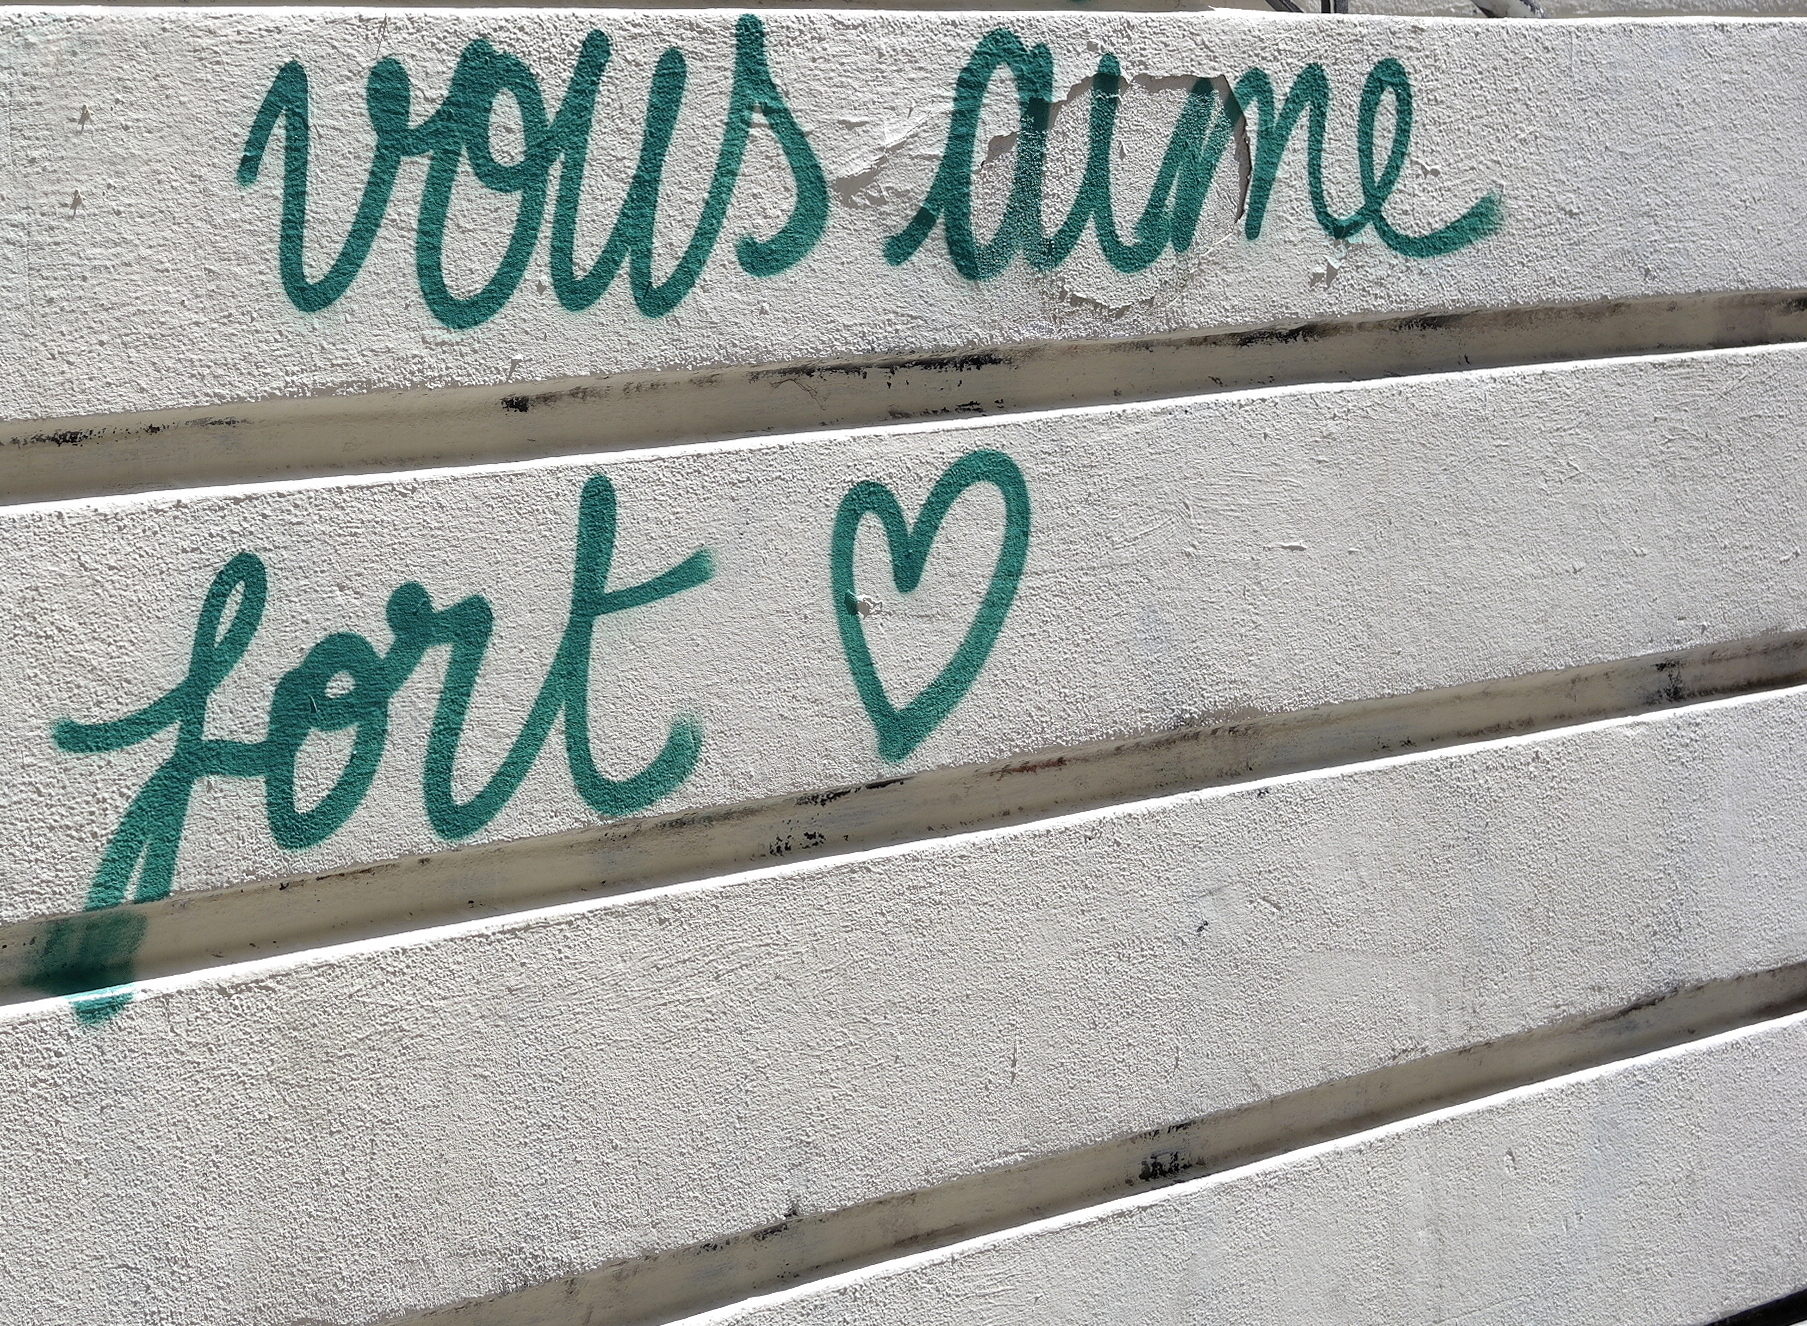 vous aime
fort ♡